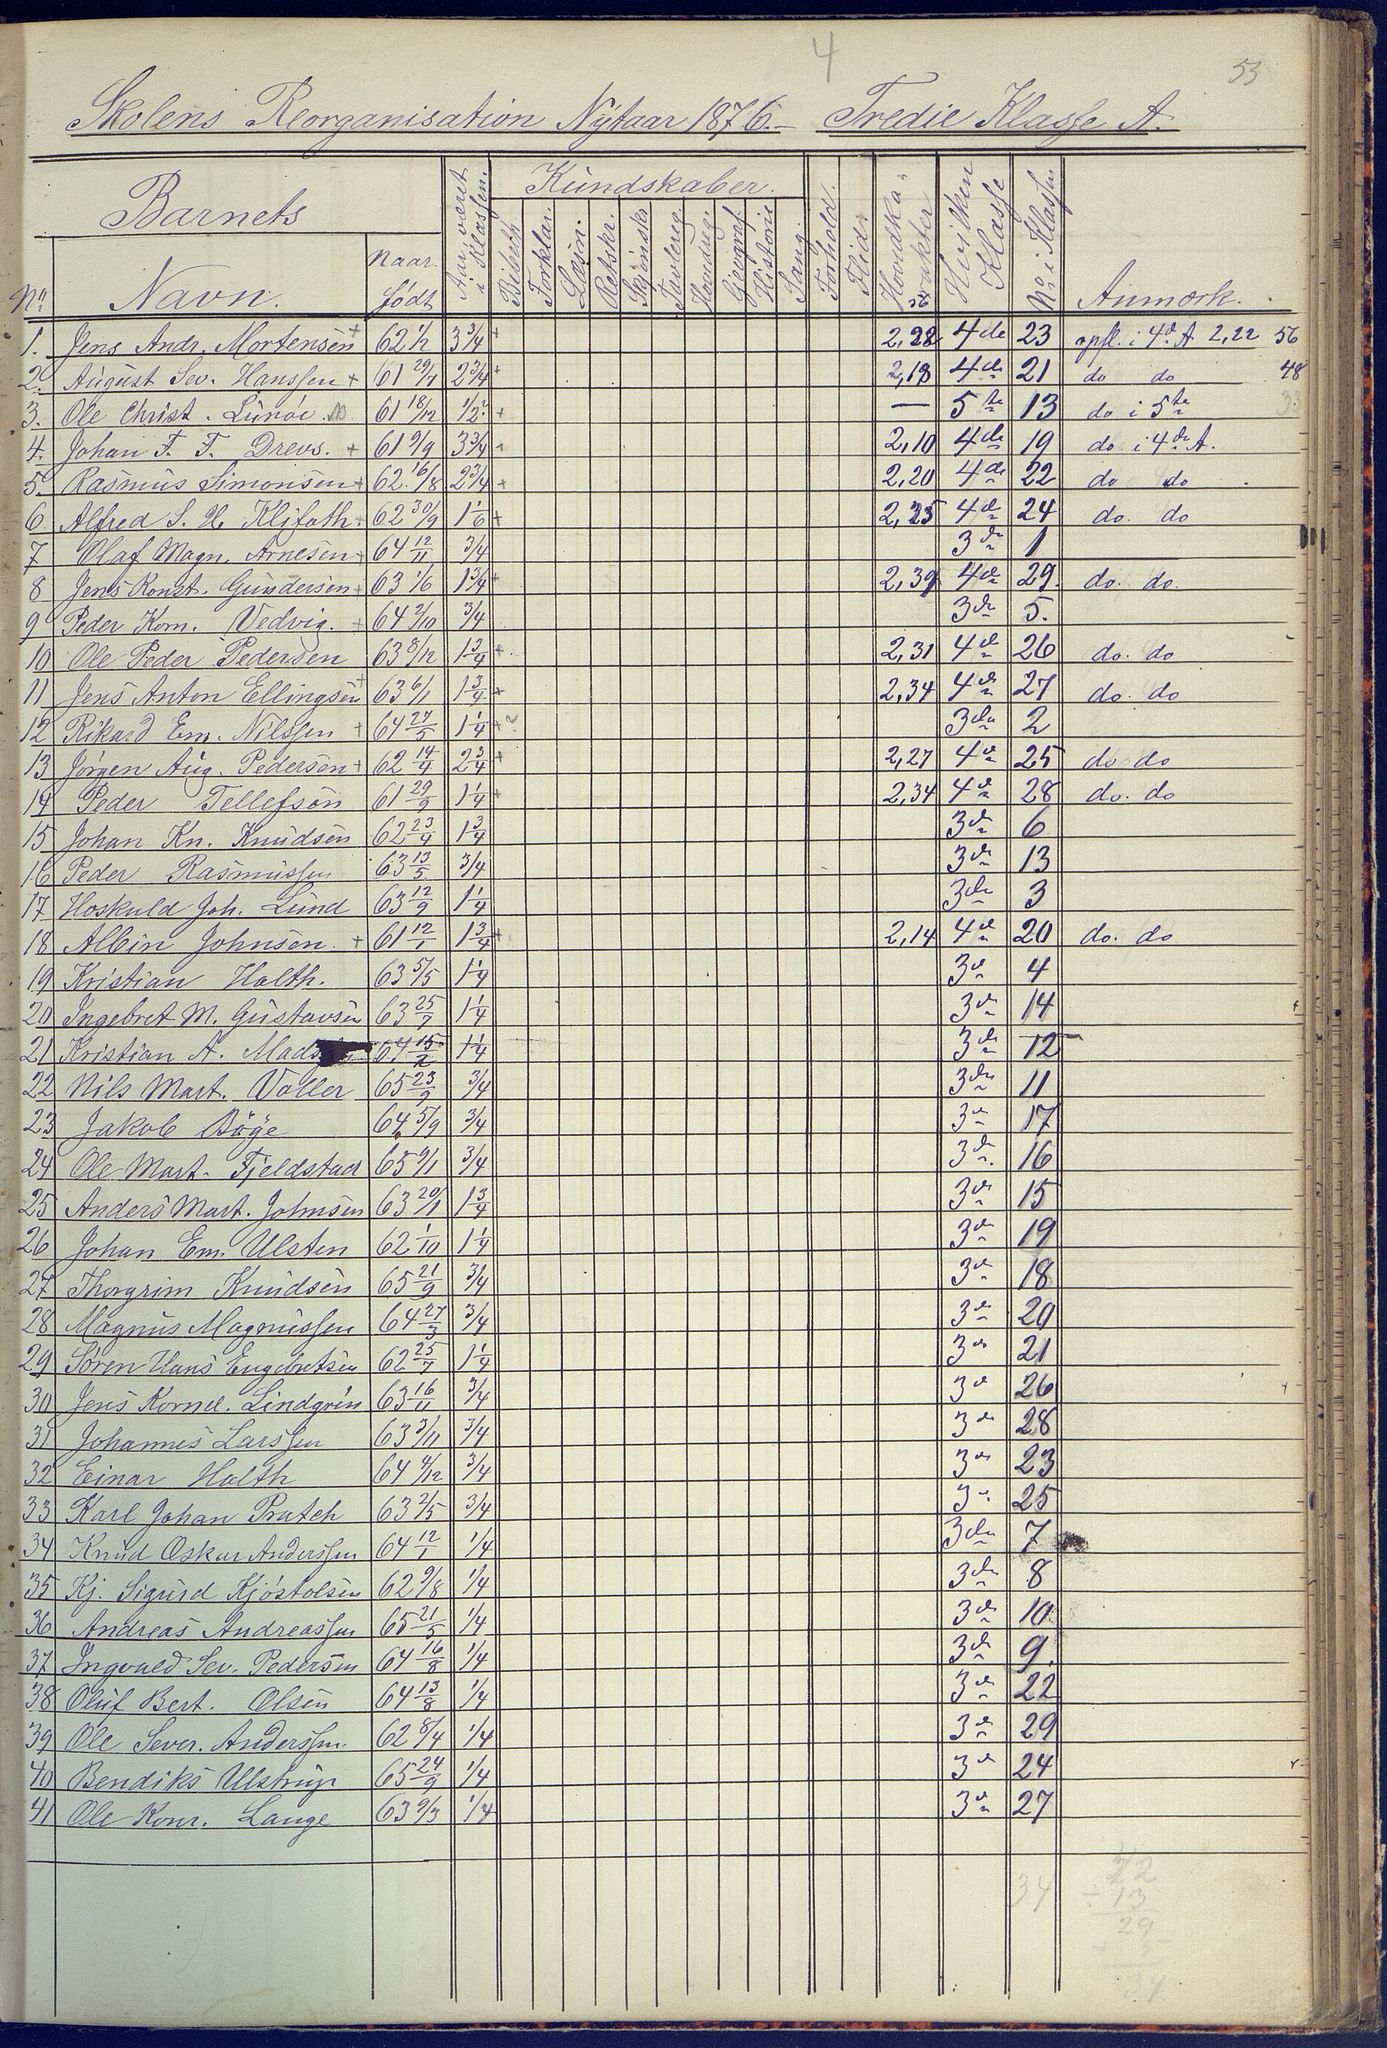 4
53
Skolens Reorganisation Nytaar 1876. — Tredie Klasse A.
Barnets
Aar været i Klassen.
Kundskaber.
Forhold.
Flid.
Hovedkarakter
Hvilken Klasse
No i Klassen
No Navn. Naar født
Bibelh. Forklar. Læsn. Retskr. Skjönskr. Tavlereg. Hovedreg. Geograf. Historie Sang.
Anmærk.
1. Jens Andr. Mortensen + 62 1/2 3 3/4 + 2,28 4de 23 opfl. i 4d A 2,22 56
2. August Sev. Hanssen + 61 29/7 2 3/4 + 2,18 4de 21 do do 48
3. Ole Christ. Lunöe 61 18/12 1/2? + — 5te 13 do i 5te 33
4. Johan F. F. Drevs. + 61 9/9 3 3/4 + 2,10 4de 19 do i 4de A.
5. Rasmus Simonsen + 62 16/8 2 3/4 + 2,20 4de 22 do do
6. Alfred S. H. + 62 30/9 1 1/6 + 2,25 4de 24 do. do
7 Olaf Magn. Arnesen + 64 12/11 3/4 3de 1
8 Jens Konst. Gundersen + 63 1/6 1 3/4 + 2,39 4de 29. do. do.
9 Peder Korn. Vedvig. + 64 2/10 3/4 3de 5.
10 Ole Peder Pedersen 63 8/12 1 3/4 + 2,31 4de 26 do. do
11 Jens Anton Ellingsen + 63 6/1 1 3/4 + 2,34 4de 27 do. do
12 Rikard Em. Nilssen + 64 27/5 1 1/4 + ? 3de 2
13 Jörgen Aug. Pedersen + 62 14/4 2 3/4 + 2,27 4de 25 do do
14 Peder Tellefsön 61 29/9 1 1/4 + 2,34 4de 28 do. do
15 Johan Kn. Knudsen 62 23/4 1 3/4 3de 6
16 Peder Rasmussen 63 13/5 3/4 3de 13
17 Hoskuld Joh. Lund 63 12/9 1 1/4 3de 3
18 Albin Johnsen. + 61 12/1 1 3/4 + 2,14 4de 20 do. do
19 Kristian Holth. 63 5/5 1 1/4 3de 4
20 Ingebret M. Gustavsen 63 25/7 1 1/4 3de 14
21 Kristian A. Madssen 64 15/2 1 1/4 3de 12
22 Nils Mart. Voller 65 23/9 3/4 3de 11
23 Jakob Böge 64 5/9 3/4 3de 17
24 Ole Mart. Fjeldstad 65 9/1 3/4 3de 16
25 Anders Mart. Johnsen 63 20/1 1 3/4 3de 15
26 Johan Em. Ulsten 62 1/10 1 1/4 3de 19
27 Thorgrim Knudsen 65 21/9 3/4 3de 18
28 Magnus Magnussen 64 27/3 3/4 3de 20
29 Sören Hans Engebretsen 62 25/7 1 1/4 3de 21
30 Jens Kornel. Lindgrén 63 16/11 3/4 3de 26
31 Johannes Larssen 63 3/11 3/4 3de 28
32 Einar Holth 64 4/12 3/4 3de 23
33 Karl Johan Pratch 63 2/5 3/4 3de 25
34 Knud Oskar Anderssen 64 12/1 1/4 3de 7
35 Kj. Sigurd Kjöstolsen 62 9/8 1/4 3de 8
36 Andreas Andreassen 65 21/5 1/4 3de 10
37 Ingvald Sev. Pedersen 64 16/8 1/4 3de 9.
38 Oluf Bert. Olsen 64 13/8 1/4 3de 22
39 Ole Sever. Anderssen 62 8/4 1/4 3de 29
40 Bendiks Ulstrup 65 24/9 1/4 3de 24
41 Ole Konr. Lange 63 9/3 1/4 3de 27
34
13
29
34